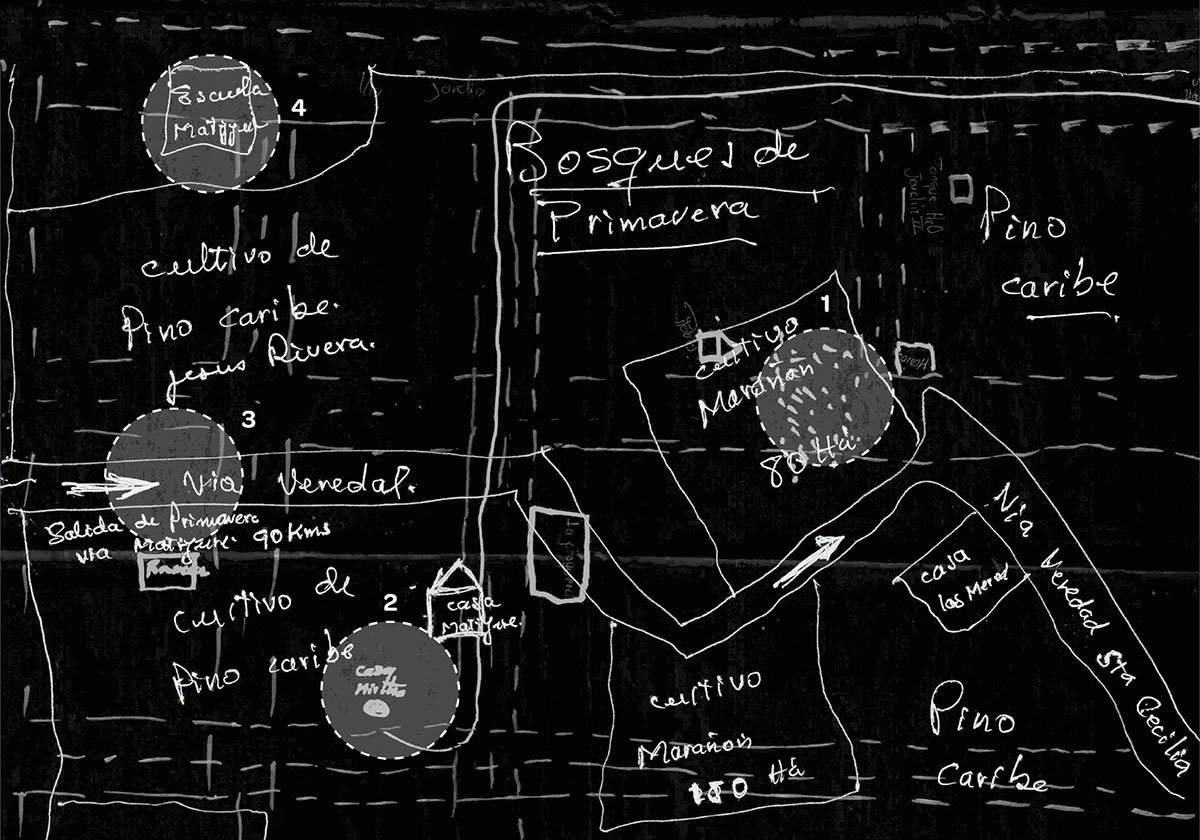 Jardin
Escuela
Matiyure
4
Bosques de
Primavera
Tanque H2O
Jardin III
Pino
caribe
cultivo de
Pino caribe.
Jesus Rivera.
1
cultivo
Marañon
80 Há
3
Via Veredal.
Salida de Primavera
via Matiyure 90 Kms
Cultivo de
Pino caribe
2
casa
Matiyure.
casa
casa
las Merced
Via Veredad Sta Cecilia
cultivo
Marañon
180 Há
Pino
caribe